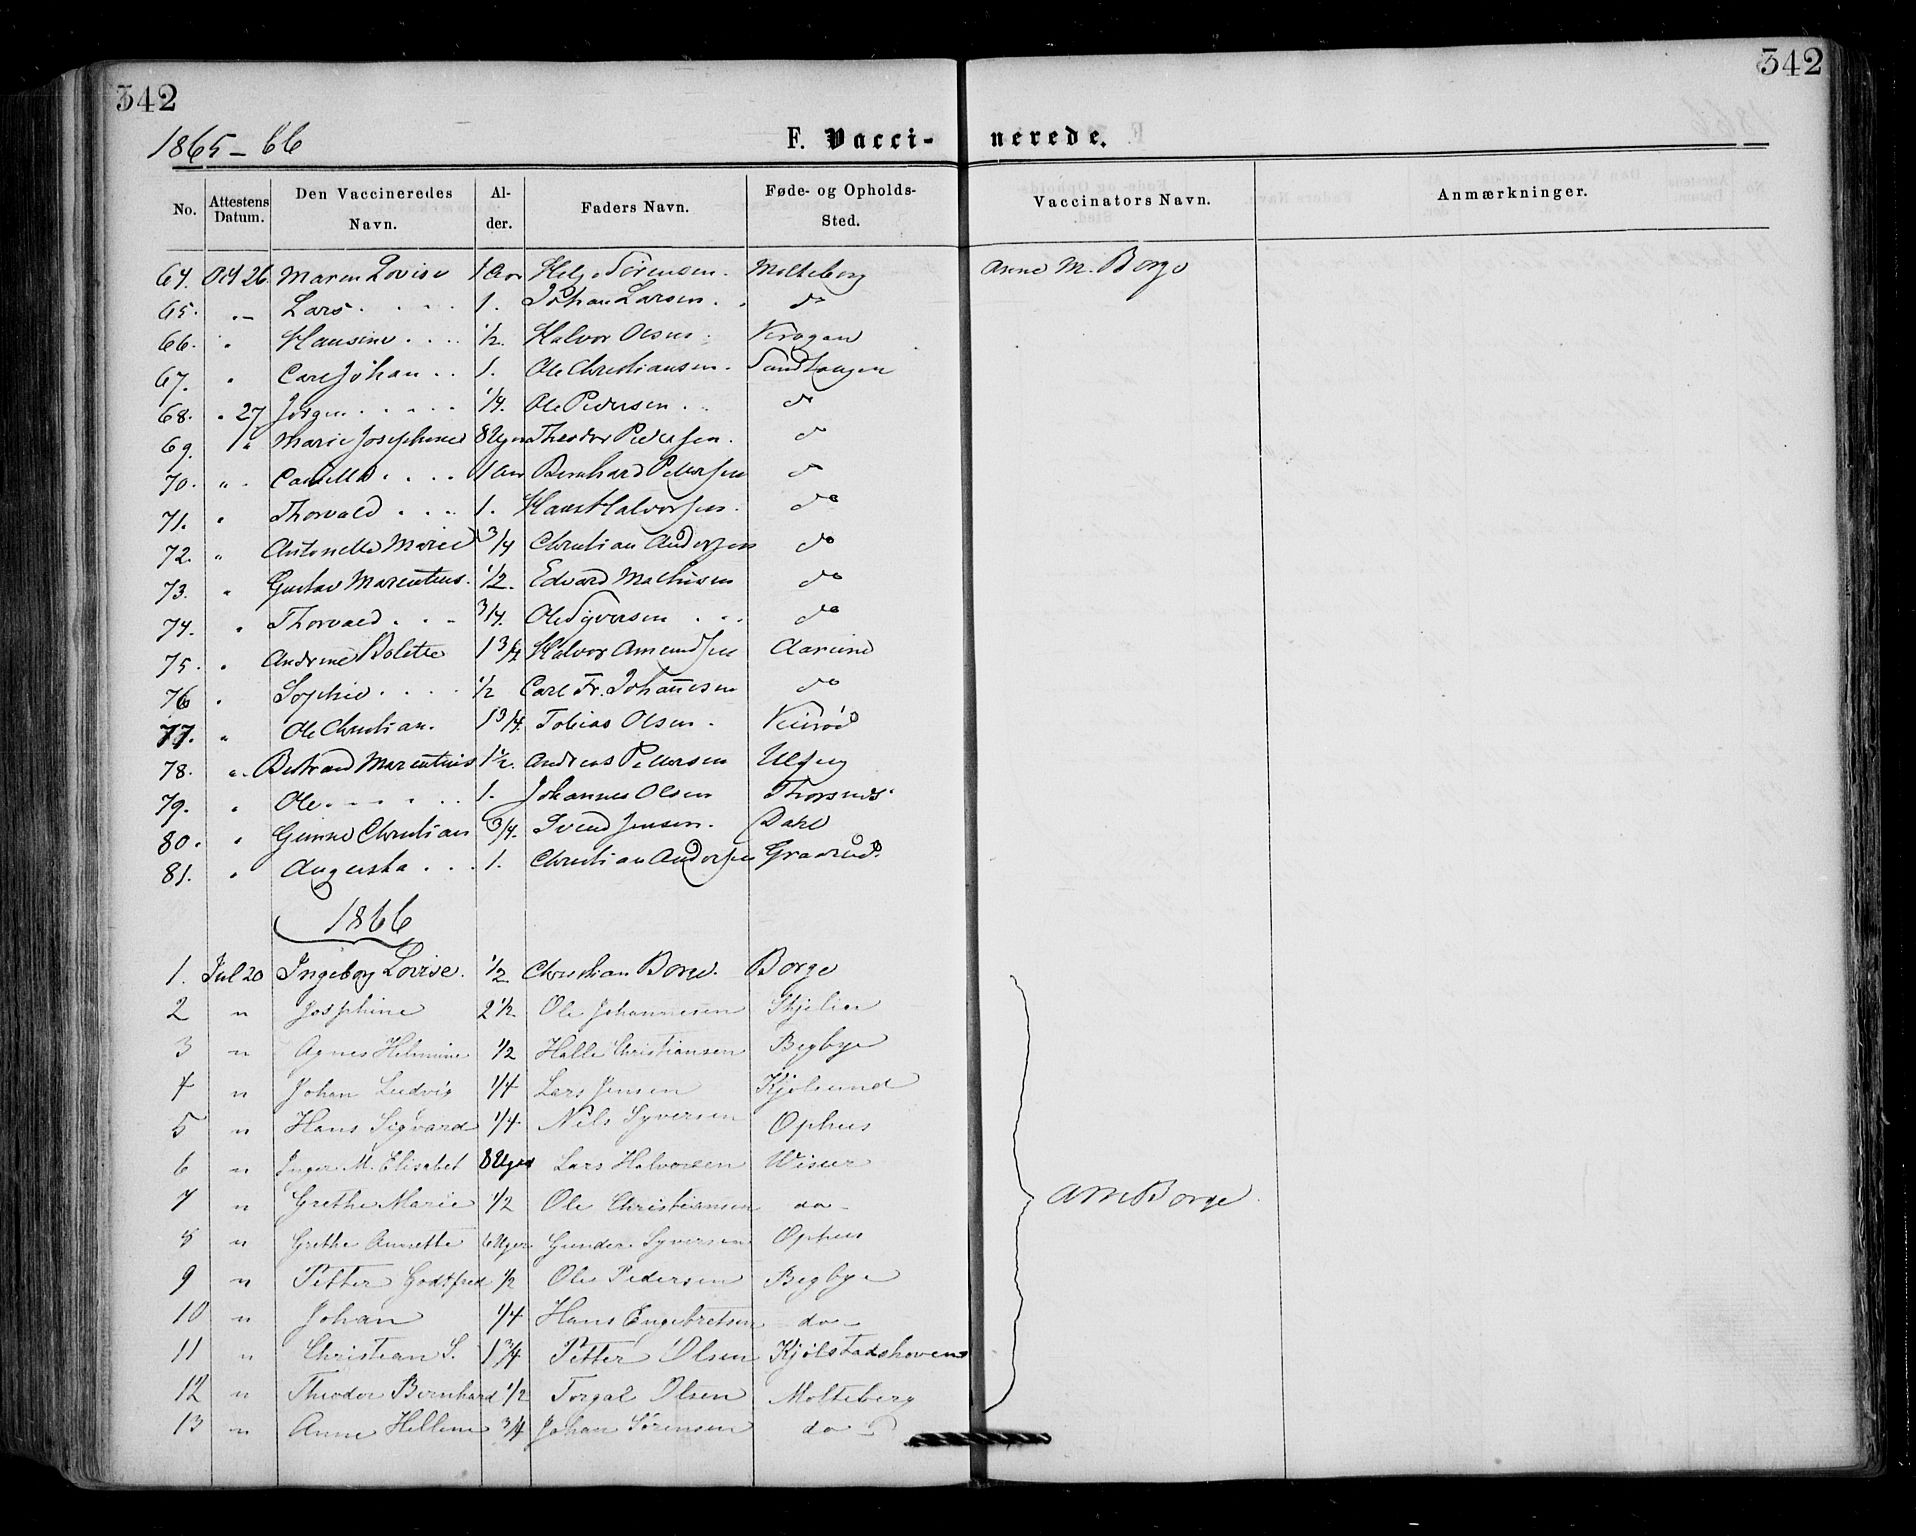 342 342
1865-66 F. Vacci- nerede.
No. Attestens Datum. Den Vaccineredes Navn. Al- der. Faders Navn. Føde- og Opholds- Sted. Vaccinators Navn. Anmærkninger.
64. Oct 26. Maren Lovise 1 Aar Helge Sørensen. Molteberg Anne M. Borge
65. „ Lars 1. Johan Larsen. do
66. „ Hansine 1/2. Halvor Olsen Krogen
67. „ Carl Johan 1. Ole Christiansen. Sandtangen
68. „ 27 Jørgen 1/4. Ole Pedersen do
69. „ Marie Josephine 8 Uger Theodor Pedersen. do
70. „ 1 Aar Bernhard Pettersen do
71. „ Thorvald 1. Hans Halvorsen. do
72. „ Antonette Marie 3/4 Christian Andersen do
73. „ Gustav Marentius. 1/2. Edvard Mathisen do
74. „ Thorvald 3/4. Ole Syversen do
75. „ Andrine Bolette 1 3/4 Halvor Amundsen Aarum
76 „ Sophie 1/2 Carl Fr. Johannesen do
77. „ Ole Christian. 1 3/4. Tobias Olsen.
78. „ Bertrand Marentius 1 1/2. Andreas Pettersen
79. „ Ole 1. Johannes Olsen Thorsnes
80. „ Gunne Christian 3/4. Svend Jensen. Dahl
81. „ Augusta 1. Christian Andersen Graarud.
1866
1. Jul 20 Ingeborg Lovise. 1/2 Christian Borge. Borge
2 „ Josphine 2 1/2 Ole Johannesen Skjelin
3 „ Agnes Helmine 1/2 Halle Christiansen Begbye
4 „ Johan Ludvig 1/4 Lars Jensen Kjølsund
5 „ Hans Sigvard 1/4 Nils Syversen Ophus
6 „ Inger M. Elisabet 8 Uger Lars Halvorsen Wisur
7 „ Grethe Marie 1/2 Ole Christiansen do- AM Borge
8 „ Grethe Annette 6 Uger Gunder Syversen Ophus
9 „ Petter Godtfred 1/2 Ole Pedersen Begbye
10 „ Johan 1/4 Hans Engebretsen do-
11 „ Christian S. 1 3/4 Petter Olsen Kjølstadshoven
12 „ Theodor Bernhard 1/2 Torgal Olsen Molteberg
13 „ Anne Hellene 3/4 Johan Sørensen do